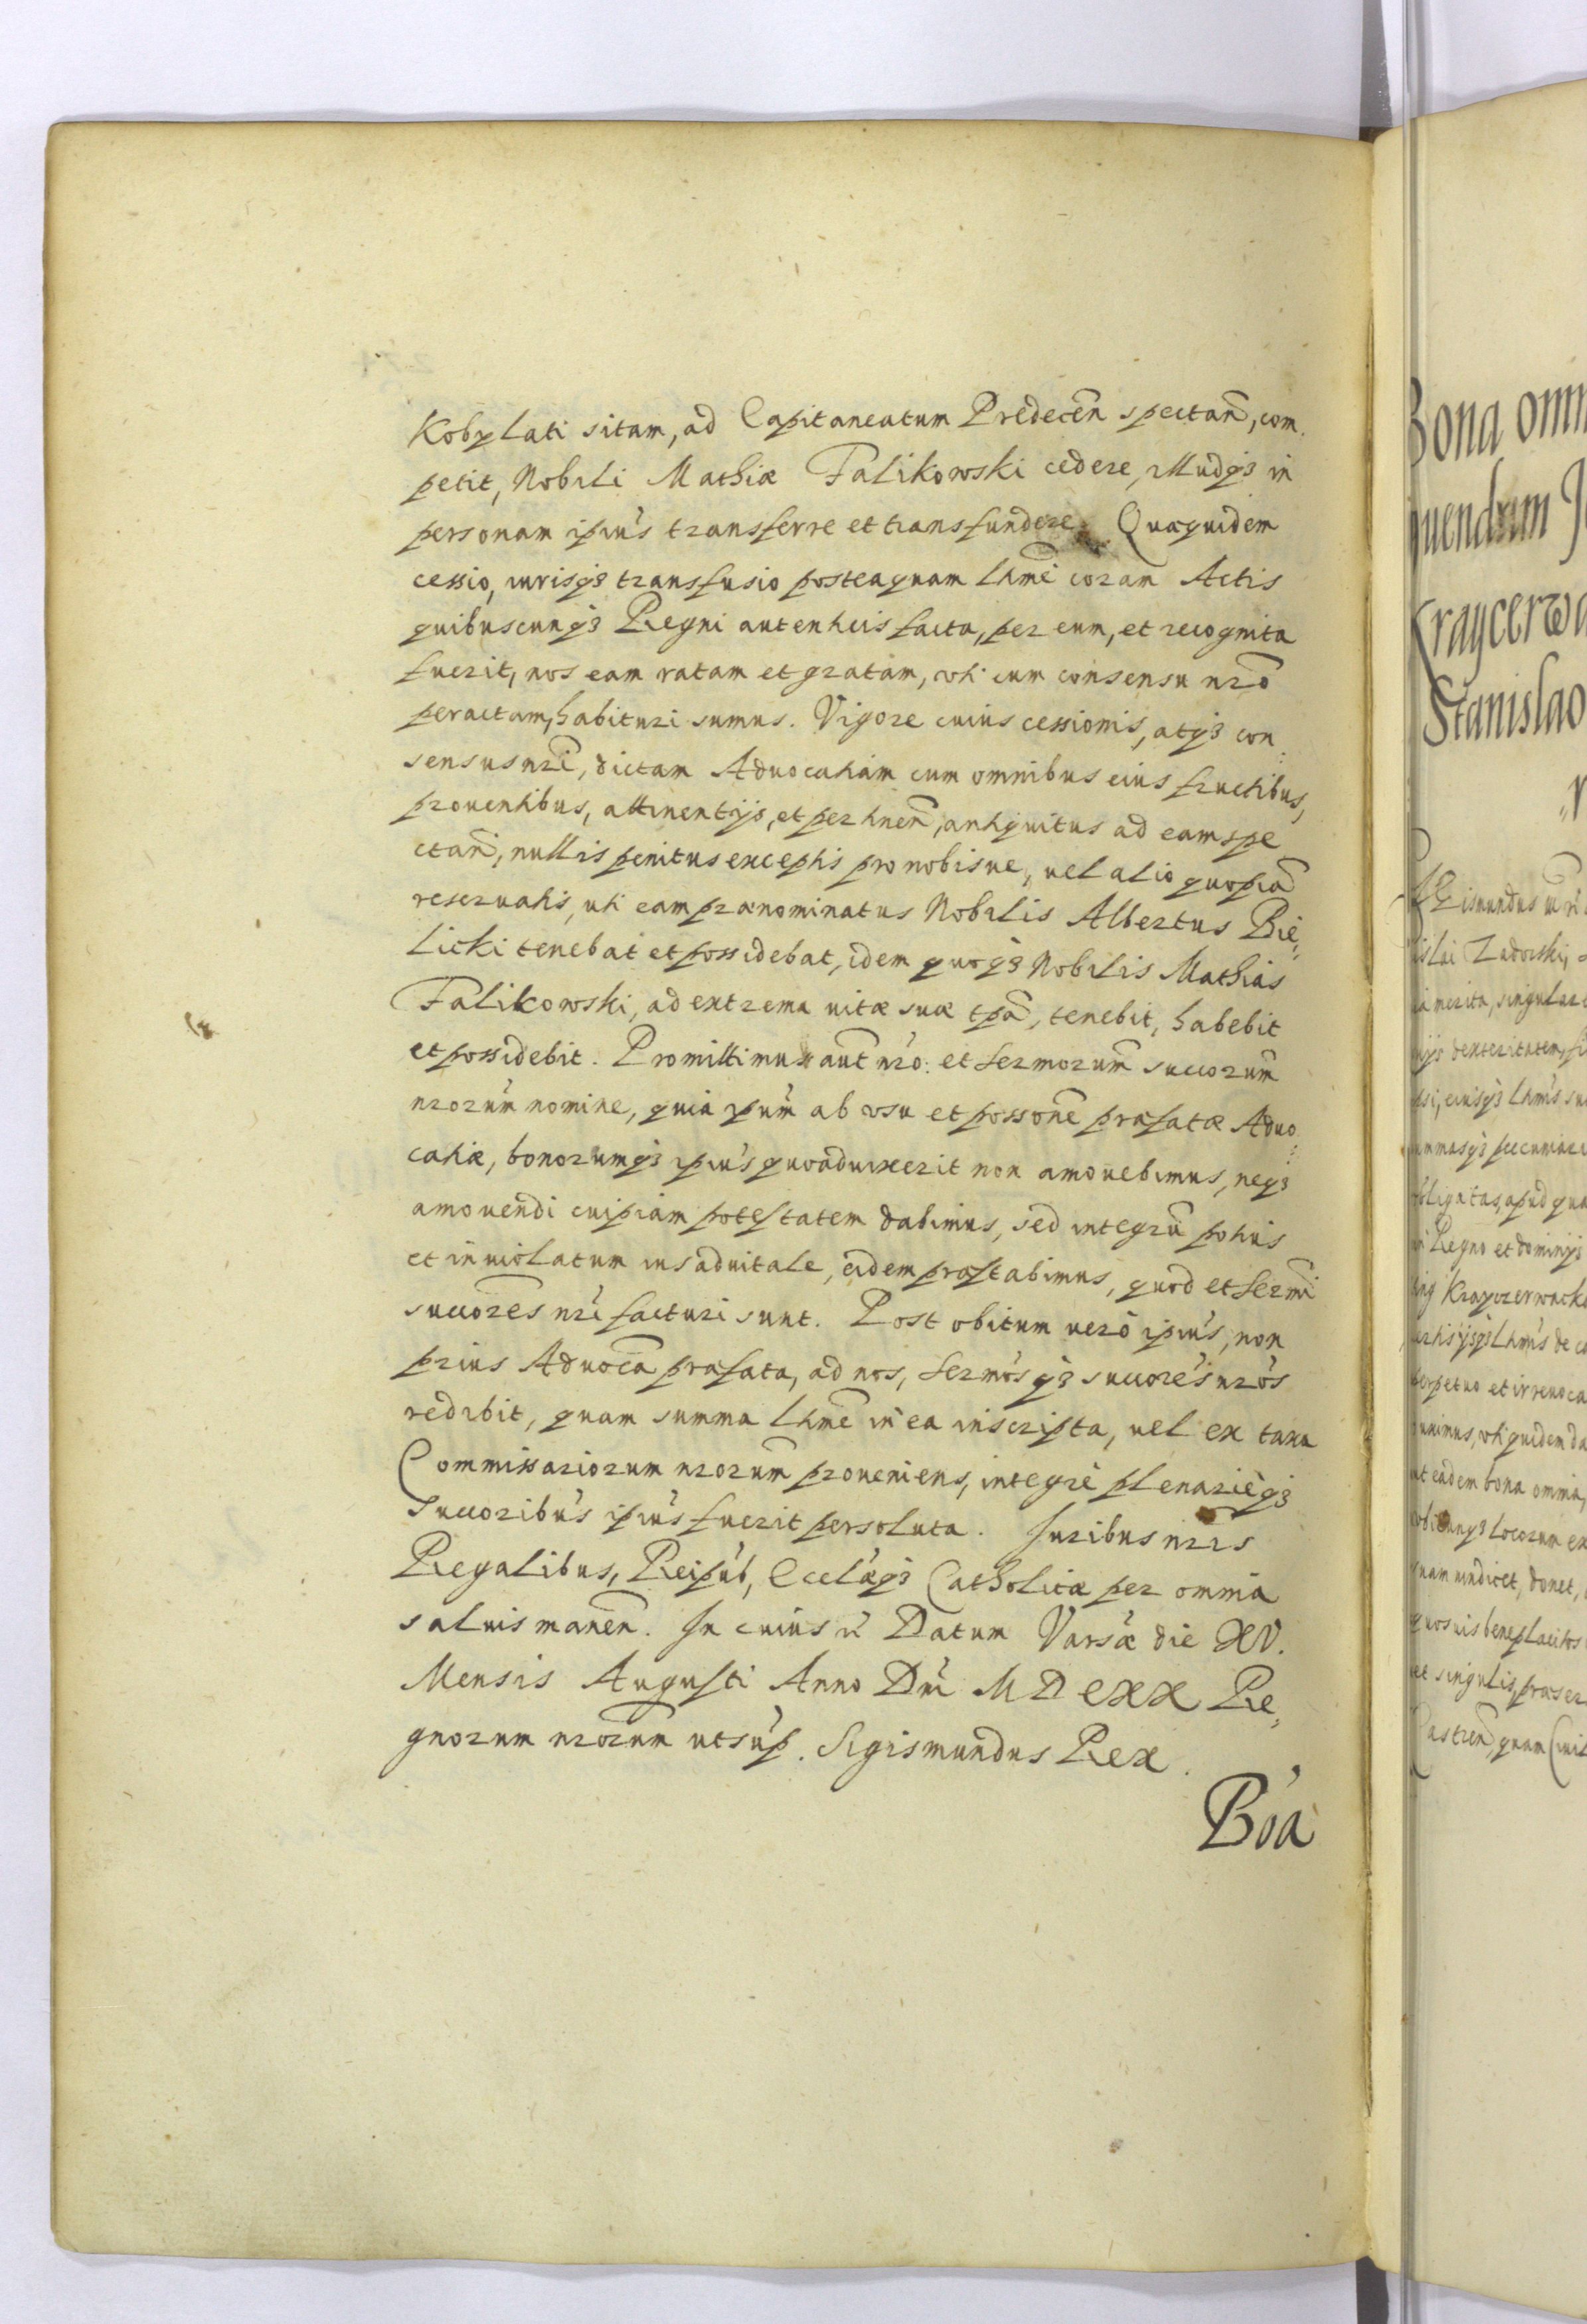 Kobylati sitam, ad Capitaneatum Predecen̄ spectan̄, com
petit, Nobili Mathiæ Falikowski cedere, illudq3 in
personam ipiu's transferre et transfundere. Quæquidem
cessio, iurisq3 transfusio posteaquam lŕme coram Actis
quibuscunq3 Regni autenticis facta, per eum, et recognita
fuerit, nos eam ratam et gratam, uti cum consensu nrō
peractam, habituri sumus. Vigore cuius cessionis, atq3 con
sensus nrī, dictam Aduocatiam cum omnibus eius fructibus,
prouentibus, attinentijs, et pertinen̄, antiquitus ad eam spe
ctan̄, nullis penitus exceptis pro nobisue, uel alio quopiā
reseruatis, uti eam prænominatus Nobilis Albertus Bie,
licki tenebat et possidebat, idem quoq3 Nobilis Mathias
Falikowski, ad extrema uitæ suæ tpā, tenebit, habebit
et possidebit. Promittimus aut̄ nrō: et sermorum̄ succorum̄
nrorum̄ nomine, quia ipum̄ ab usu et posson̄e præfatæ Aduo
catiæ, bonorumq3 ipiu's quoaduixerit non amouebimus, neq3
amouendi cuipiam potestatem dabimus, sed integrū potius
et inuiolatum ius aduitale, eidem præstabimus, quod et sermī
succores nrī facturi sunt. Post obitum uerò ipiu's, non
prius Aduocā præfata, ad nos, sermo's q3 succore's nro's
redibit, quam summa lŕme in ea inscripta, uel ex taxa
Commissariorum nrorum̄ proueniens, integrè plenarièq3
Succoribu's ipiu's fuerit persoluta. Iuribus nris
Regalibus, Reipub, Eccl'æq3 Catholicæ per omnia
saluis manen̄. In cuius r̄i Datum Varsæ die XV.
Mensis Augusti Anno Dnī MDCXX Re,
gnorum nrorum̄ ut sup̄. Sigismundus Rex.
Bo'a
Bona omn
quendam J
Kraycerwa
Stanislao
islai Zadorski,
merita, singular
dexteritatem, fi
summasq3 pecuniar
obligatas, apud qua
Regno et dominijs
perpetuo et irreuoca
ut eadem bona omnia,
locorum ex
quam uindicet, donet,
quosuis beneplacitos
et singulis, præser
Castren̄, quam Ciuil